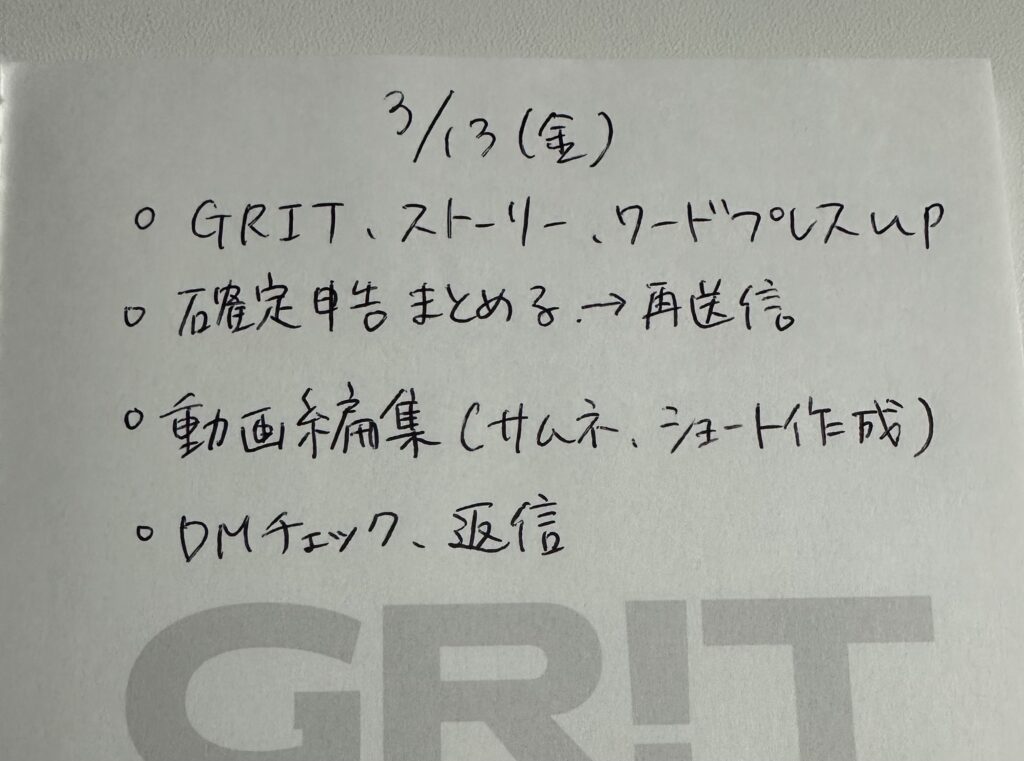 3/13(金)
○ GRIT、ストーリー、ワードプレスup
○ 確定申告まとめる.→再送信
○ 動画編集(サムネ、ショート作成)
○ DMチェック、返信
GRIT